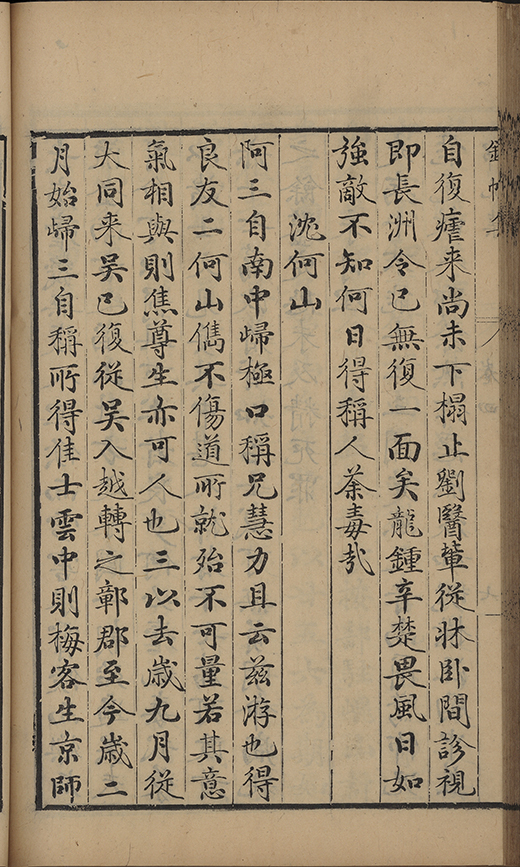 自復瘧来尚未下榻止劉醫輩從牀卧間診視
即長洲令已無復一面矣龍鍾辛楚畏風日如
強敵不知何日得稱人荼毒㢤
沈何山
阿三自南中歸極口稱兄慧力且云兹游也得
良友二何山儁不傷道所就殆不可量若其意
氣相與則焦尊生亦可人也三以去歳九月從
大同来吳已復從吳入越轉之鄣郡至今歳二
月始歸三自稱所得佳士雲中則梅客生京師